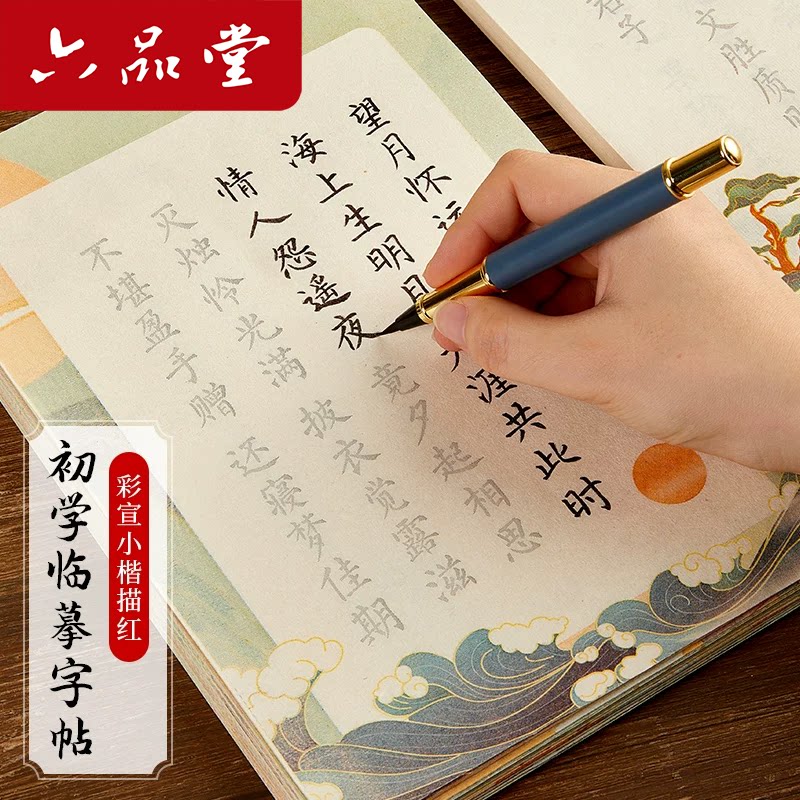 六品堂
望月怀远
海上生明月 天涯共此时
情人怨遥夜 竟夕起相思
灭烛怜光满 披衣觉露滋
不堪盈手赠 还寝梦佳期
文胜质
君子
彩宣小楷描红
初学临摹字帖